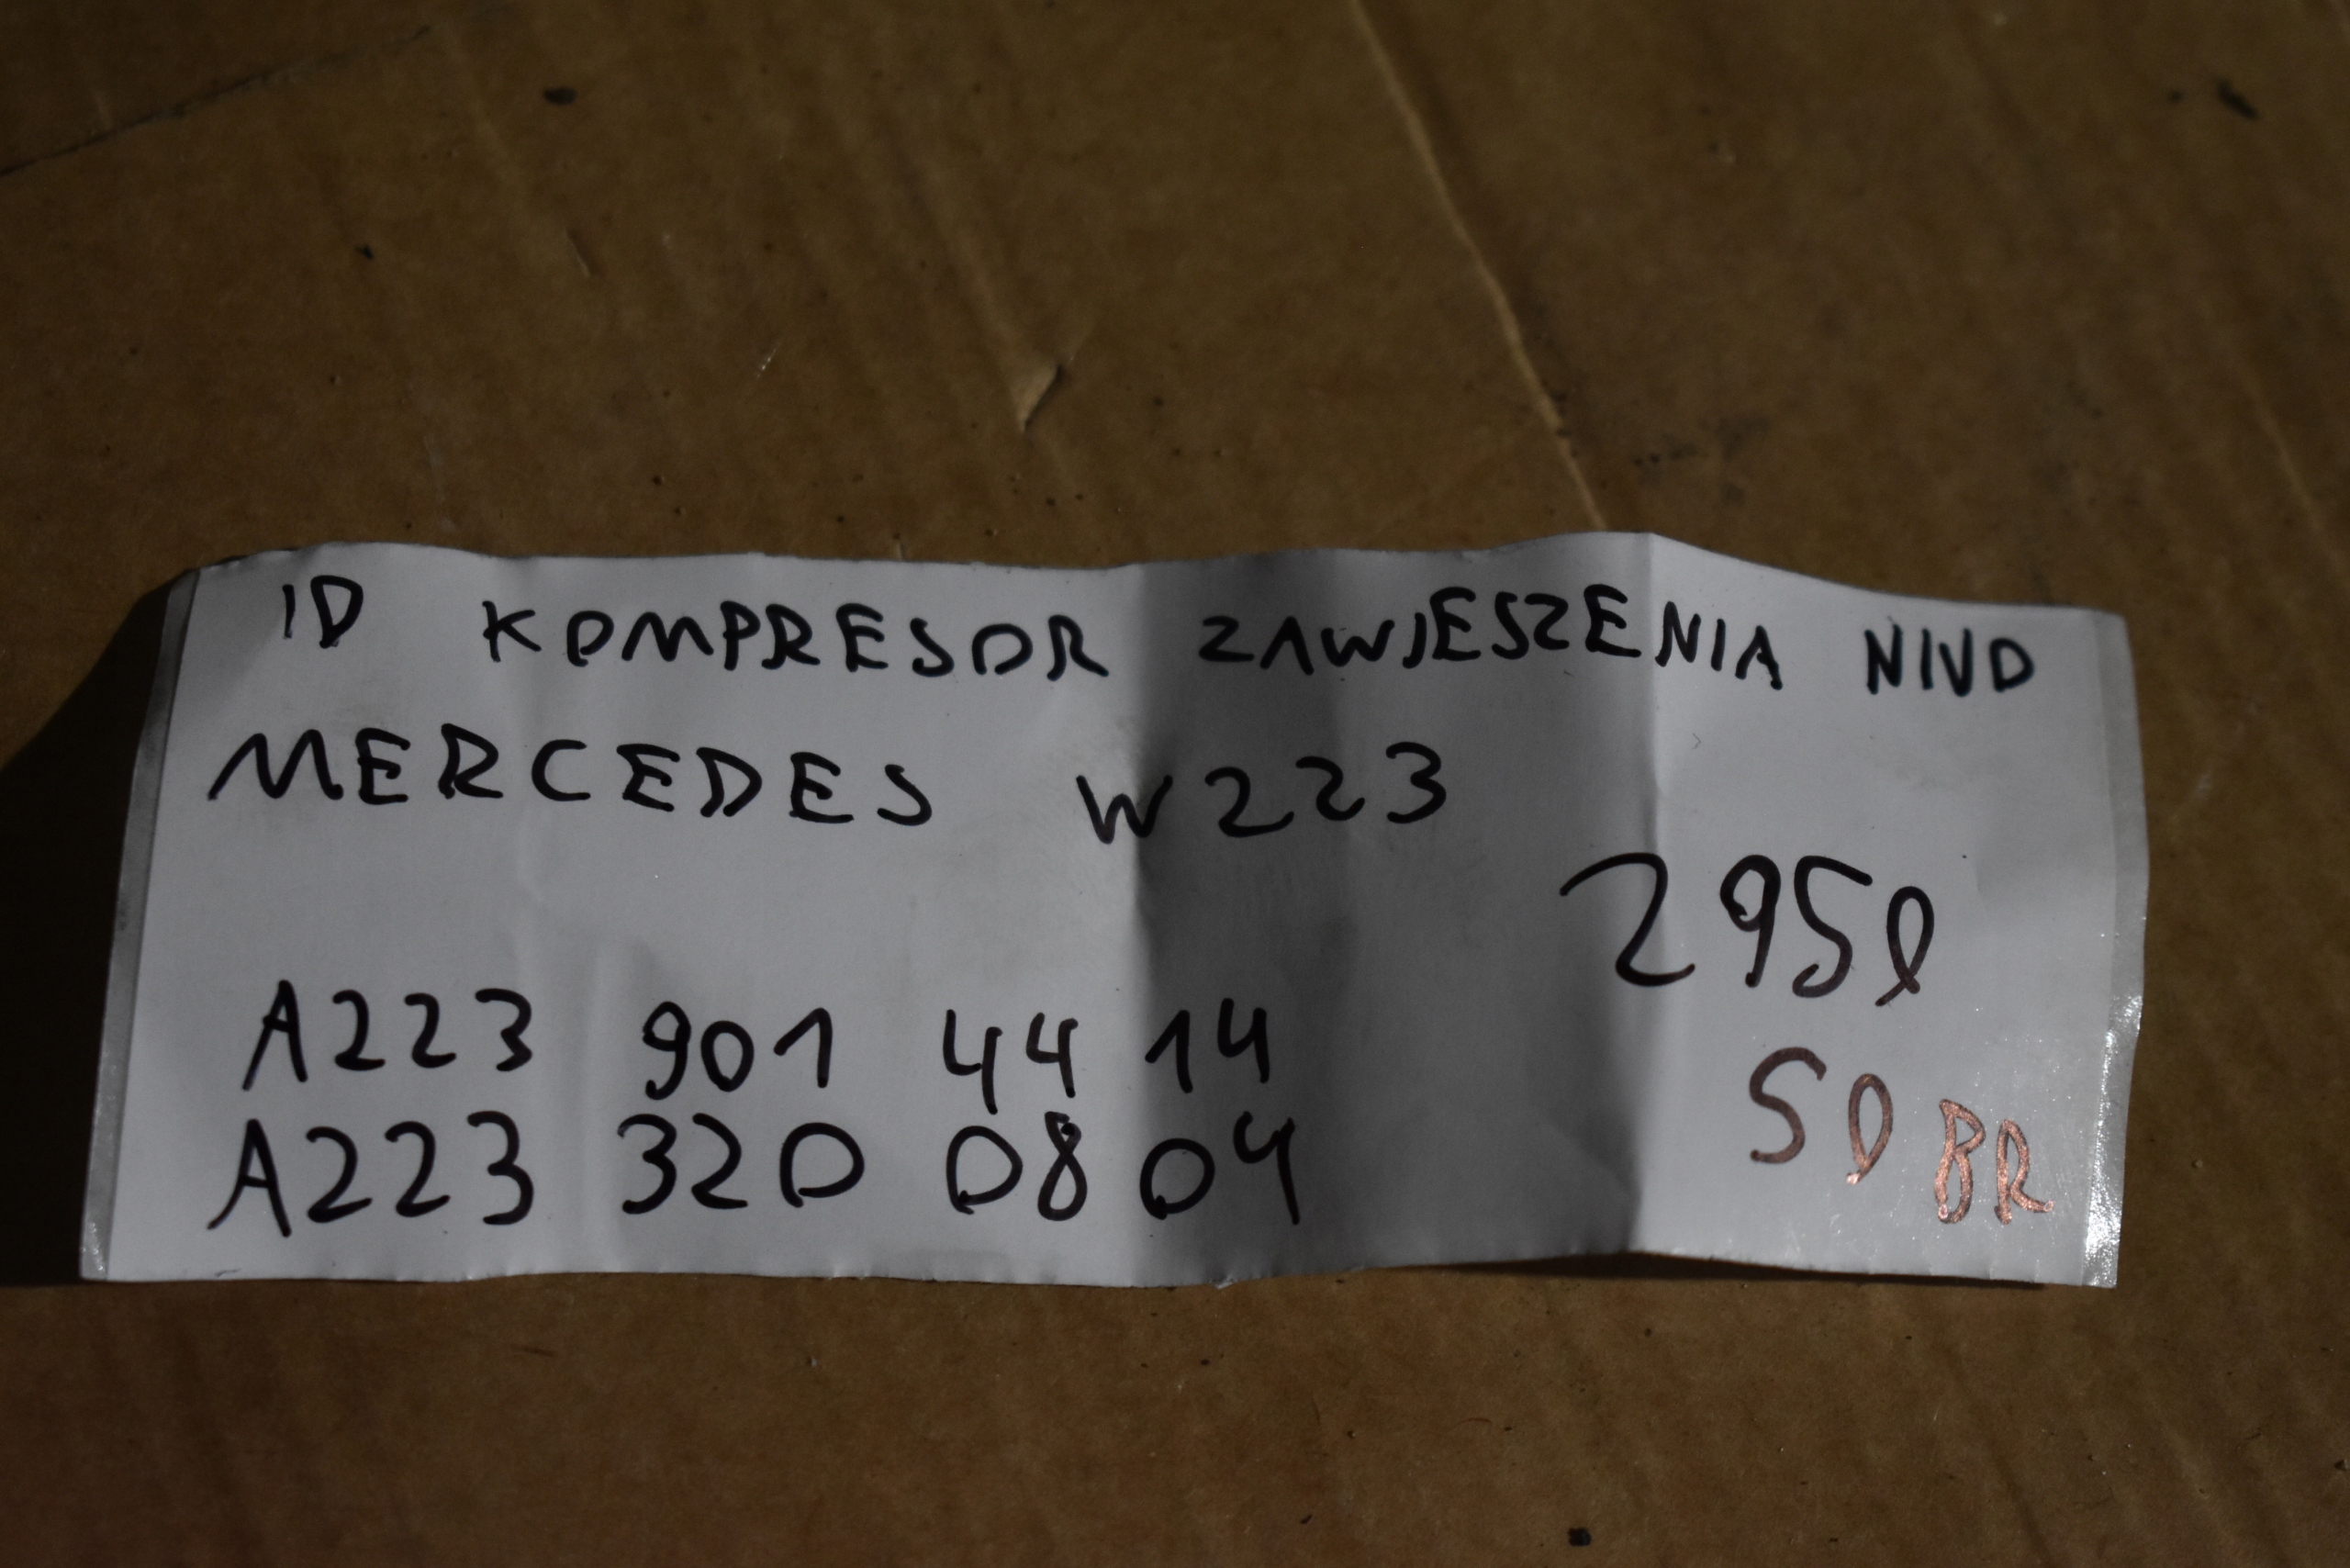 ID KOMPRESOR ZAWIESZENIA NIVO
MERCEDES W223
2950
A223 901 44 14
SO BR
A223 320 08 04